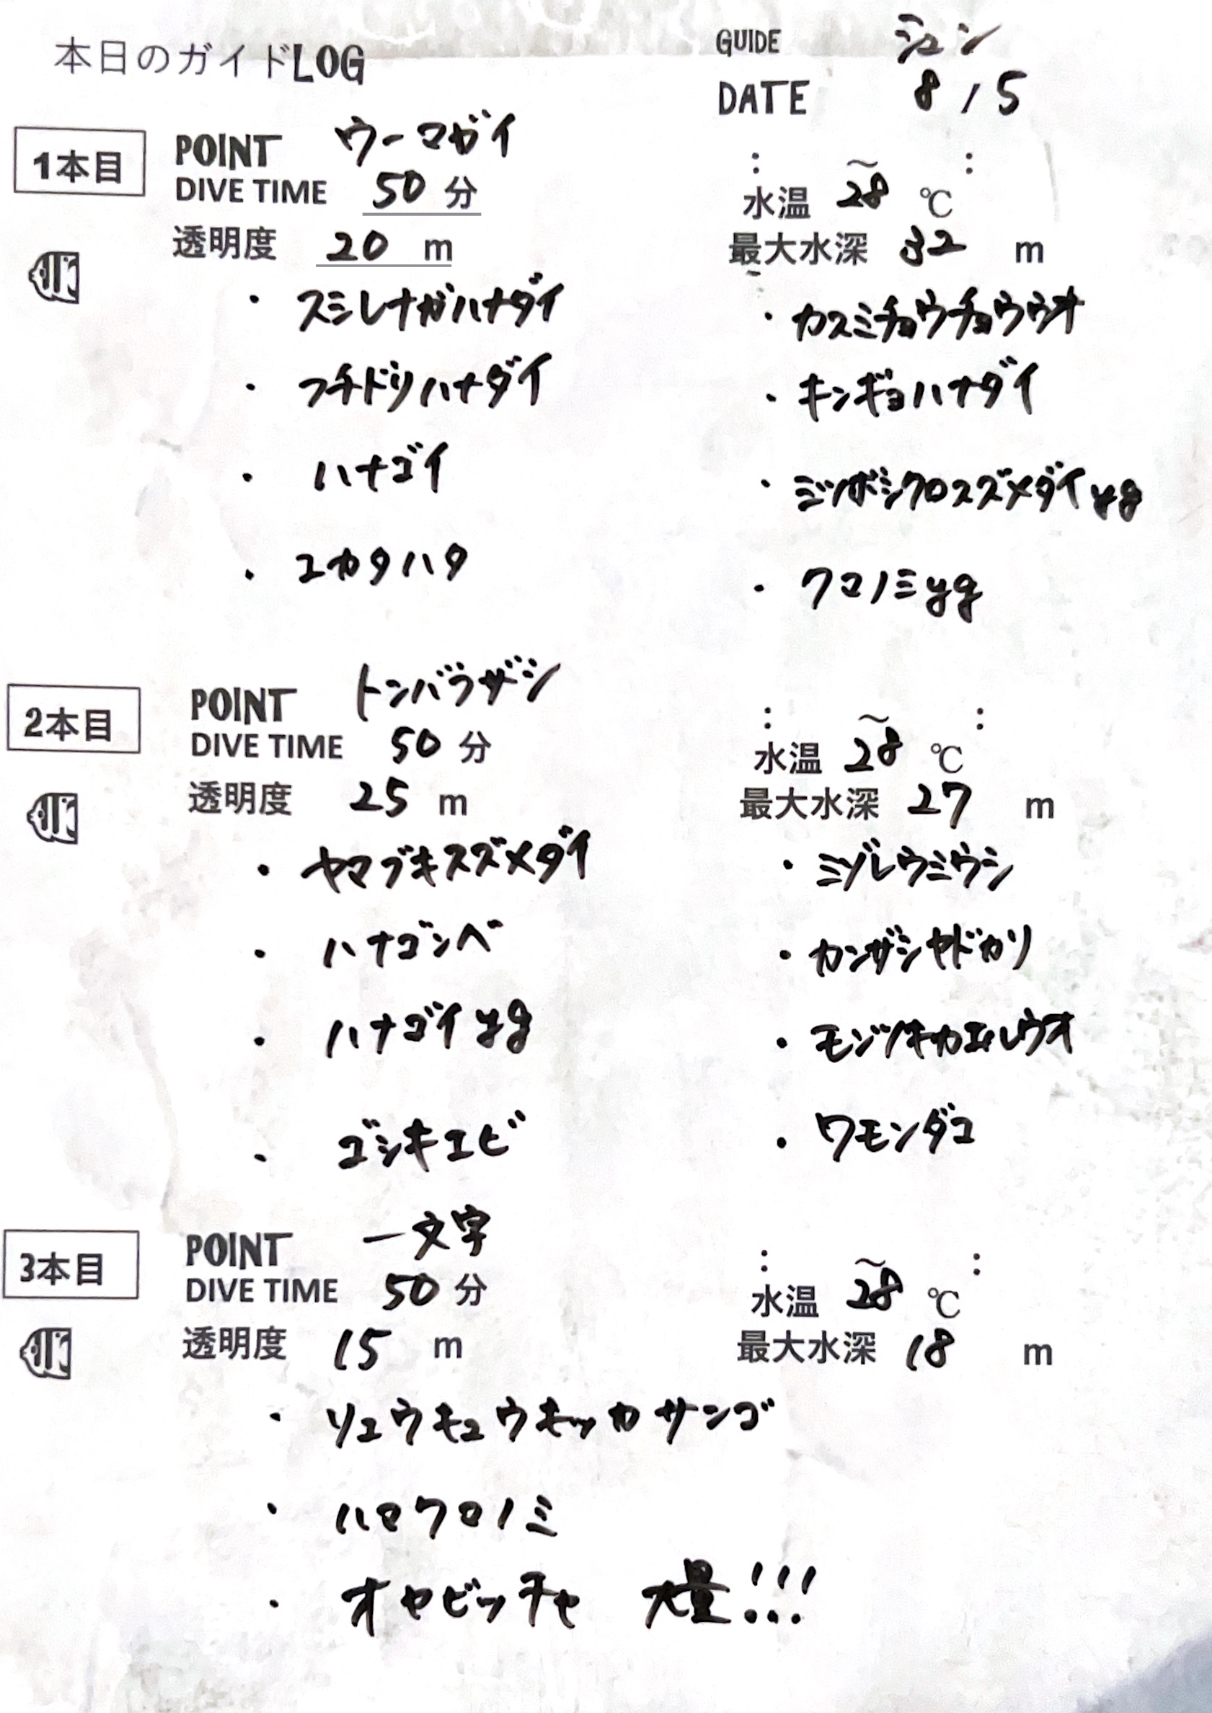 本日のガイドLOG
GUIDE ジュン
DATE 8/5
1本目
POINT ウーマガイ
DIVE TIME 50 分
: ～ :
水温 28 ℃
透明度 20 m
最大水深 32 m
・スミレナガハナダイ
・カスミチョウチョウウオ
・フチドリハナダイ
・キンギョハナダイ
・ハナゴイ
・ミツボシクロスズメダイyg
・ユカタハタ
・クマノミyg
2本目
POINT トンバラザシ
DIVE TIME 50 分
: ～ :
水温 28 ℃
透明度 25 m
最大水深 27 m
・ヤマブキスズメダイ
・ミゾレウミウシ
・ハナゴンベ
・カンザシヤドカリ
・ハナゴイyg
・モンツキカエルウオ
・ゴシキエビ
・ワモンダコ
3本目
POINT 一文字
DIVE TIME 50 分
: ～ :
水温 28 ℃
透明度 15 m
最大水深 18 m
・リュウキュウキッカサンゴ
・ハマクマノミ
・オヤビッチャ 大量!!!